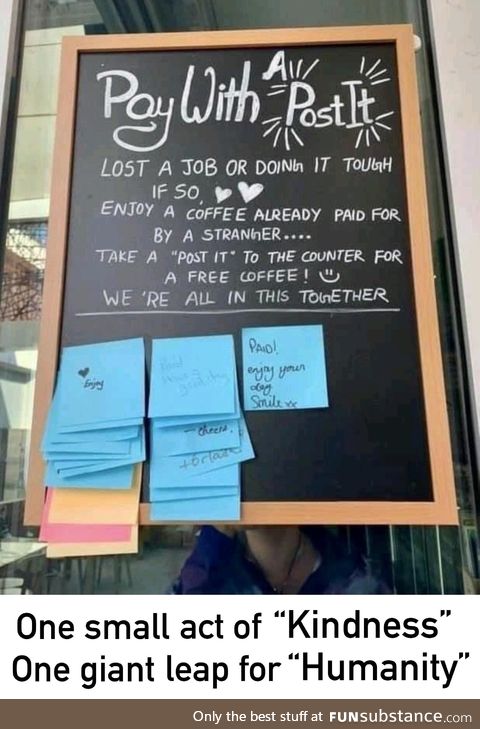 Pay With A Post It
LOST A JOB OR DOING IT TOUGH
IF SO,
ENJOY A COFFEE ALREADY PAID FOR
BY A STRANGER....
TAKE A "POST IT" TO THE COUNTER FOR
A FREE COFFEE!
WE'RE ALL IN THIS TOGETHER
Enjoy
PAID!
enjoy your
day
Smile xx
cheers.
One small act of “Kindness”
One giant leap for “Humanity”
Only the best stuff at FUNsubstance.com